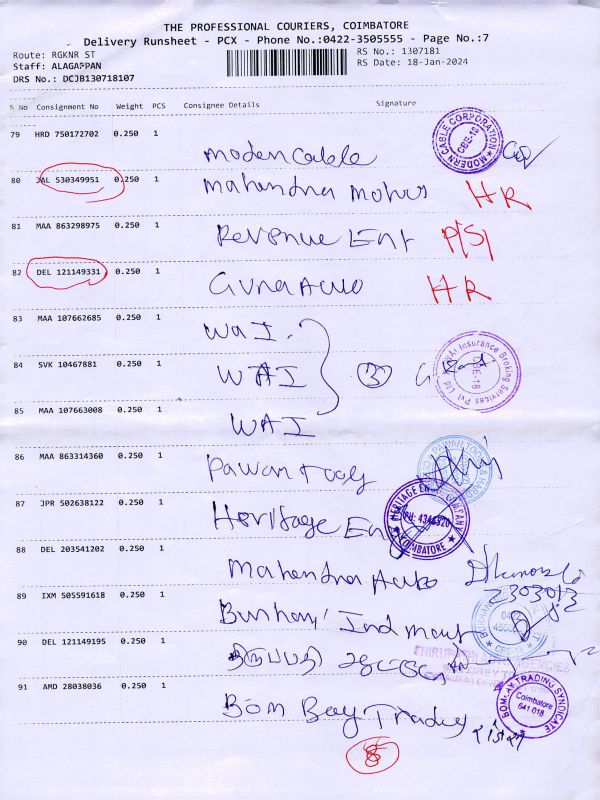 THE PROFESSIONAL COURIERS, COIMBATORE
Delivery Runsheet - PCX - Phone No.:0422-3505555 - Page No.:7
Route: RGKNR ST
RS No.: 1307181
Staff: ALAGAPPAN
RS Date: 18-Jan-2024
DRS No.: DCJB130718107
S No Consignment No Weight PCS Consignee Details Signature
79 HRD 750172702 0.250 1
Moden Cable
MODERN CABLE CORPORATION CBE-18
80 JAL 530349951 0.250 1
Mahendra Motors HR
81 MAA 863298975 0.250 1
Revenue Ent P/S)
82 DEL 121149331 0.250 1
Guna Auto HR
83 MAA 107662685 0.250 1
WAI.
84 SVK 10467881 0.250 1
WAI 3
Insurance Broking Services Pvt Ltd CBE-18
85 MAA 107663008 0.250 1
WAI
86 MAA 863314360 0.250 1
Pawan tools
PAWAN TOOLS
87 JPR 502638122 0.250 1
Heritage Eng
HERITAGE ENGG COMPANY PH: 4344920 COIMBATORE
88 DEL 203541202 0.250 1
Mahendra Auto
89 IXM 505591618 0.250 1
Burhani Ind mart
90 DEL 121149195 0.250 1
91 AMD 28038036 0.250 1
Bom Bay Trading
BOMBAY TRADING SYNDICATE Coimbatore 641 018
8